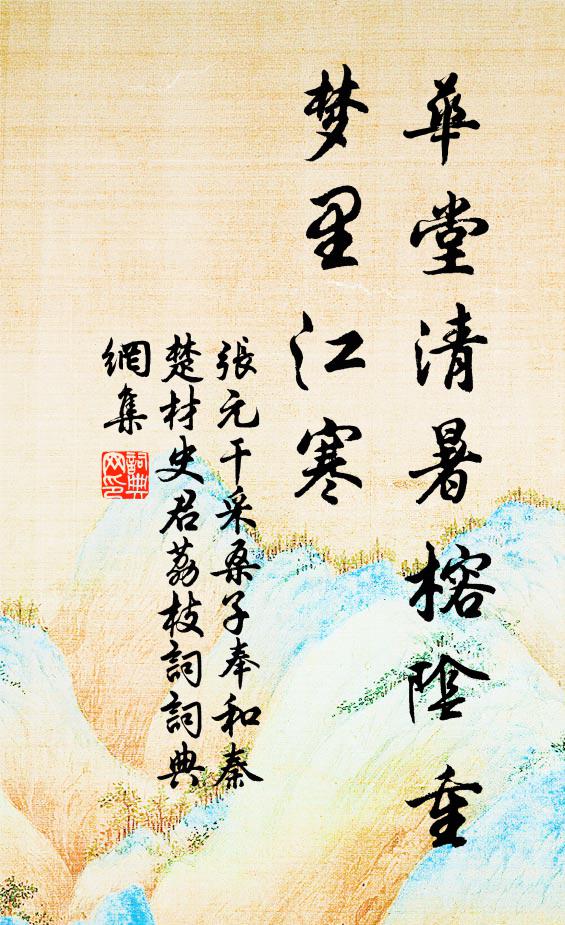 華堂清暑榕陰重
梦里江寒
張元干采桑子奉和秦
楚材史君荔枝詞詞典
網集
詞典网印